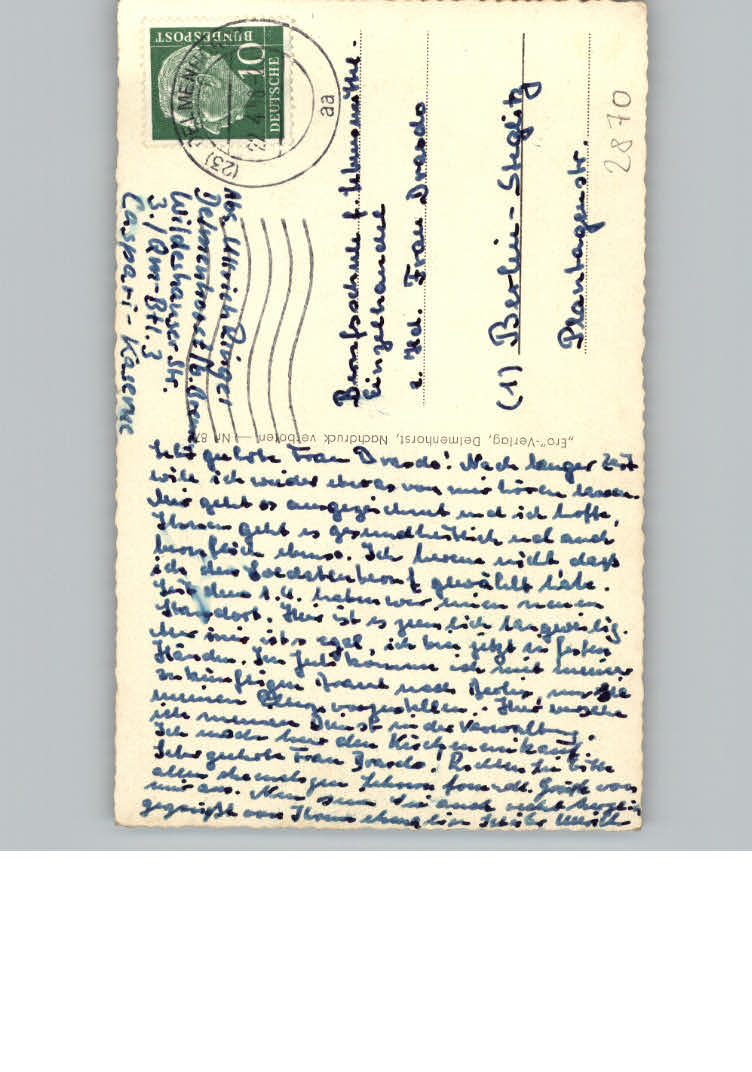 DEUTSCHE
BUNDESPOST
10
(23) DELMEN
22.4.
aa
Abs. Ullrich
Delmenhorst
Wildeshauser Str.
3./Qm-Btl. 3
Caspari-Kaserne
Berufsschule f.
Einzelhandel
z. Hd. Frau Drasdo
(1) Berlin-Steglitz
Plantagenstr.
2870
„Ero"-Verlag, Delmenhorst, Nachdruck verboten — Nr. 87
Sehr geehrte Frau Drasdo! Nach langer Zeit
will ich wieder etwas von mir hören lassen.
Mir geht es ausgezeichnet und ich hoffe,
Ihnen geht es gesundheitlich und auch
beruflich ebenso. Ich bereue nicht daß
ich den Soldatenberuf gewählt habe.
Seit dem 1.4. haben wir einen neuen
Standort. Hier ist es ziemlich langweilig.
Nur mir ist's egal, ich bin jetzt in festen
Händen. Im Juli komme ich mit meiner
zukünftigen Braut nach Berlin, um sie
meinen Eltern vorzustellen. Hier mache
ich meinen Dienst in der Verwaltung.
Ich mache hier den Kücheneinkauf.
Sehr geehrte Frau Drasdo! Richten Sie bitte
allen ehemaligen Lehrern Grüße von
mir aus. Nun sein Sie auch recht herzlich
gegrüßt von Ihrem ehemaligen Schüler Ullrich